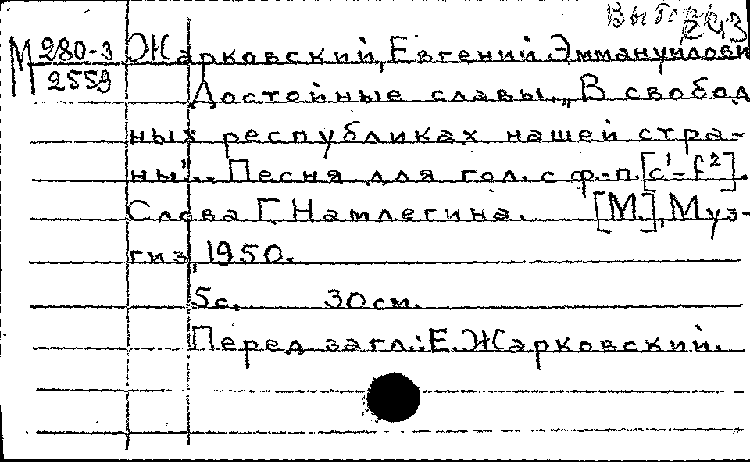 243
М 280-3 Жарковский, Евгений Эммануилови
2559 Достойные славы. „В свобод
ных республиках нашей стра-
ны“.. Песня для гол. с ф.-п. [c¹-f²].
Слова Г. Намлегина. [М.], Муз-
гиз, 1950.
5с. 30см.
Перед загл.: Е. Жарковский.